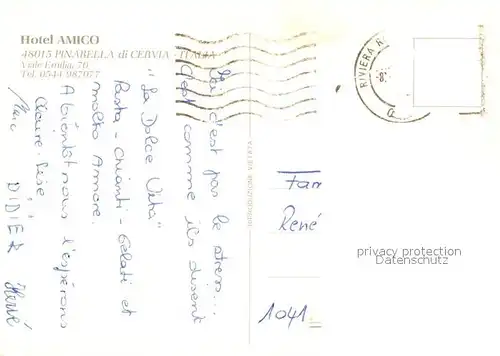 Hotel AMICO
48015 PINARELLA di CERVIA - ITALIA
Viale Emilia, 76
Tel. 0544 987077
c'est pas le stress...
comme ils disent
"La Dolce Vita"
Pasta - chianti - Gelati et
molto Amore.
A bientôt nous l'espérons
Claire-Lise
DIDIER Hervé
RIPRODUZIONE VIETATA
RIVIERA
Fam
René
1041
privacy protection
Datenschutz